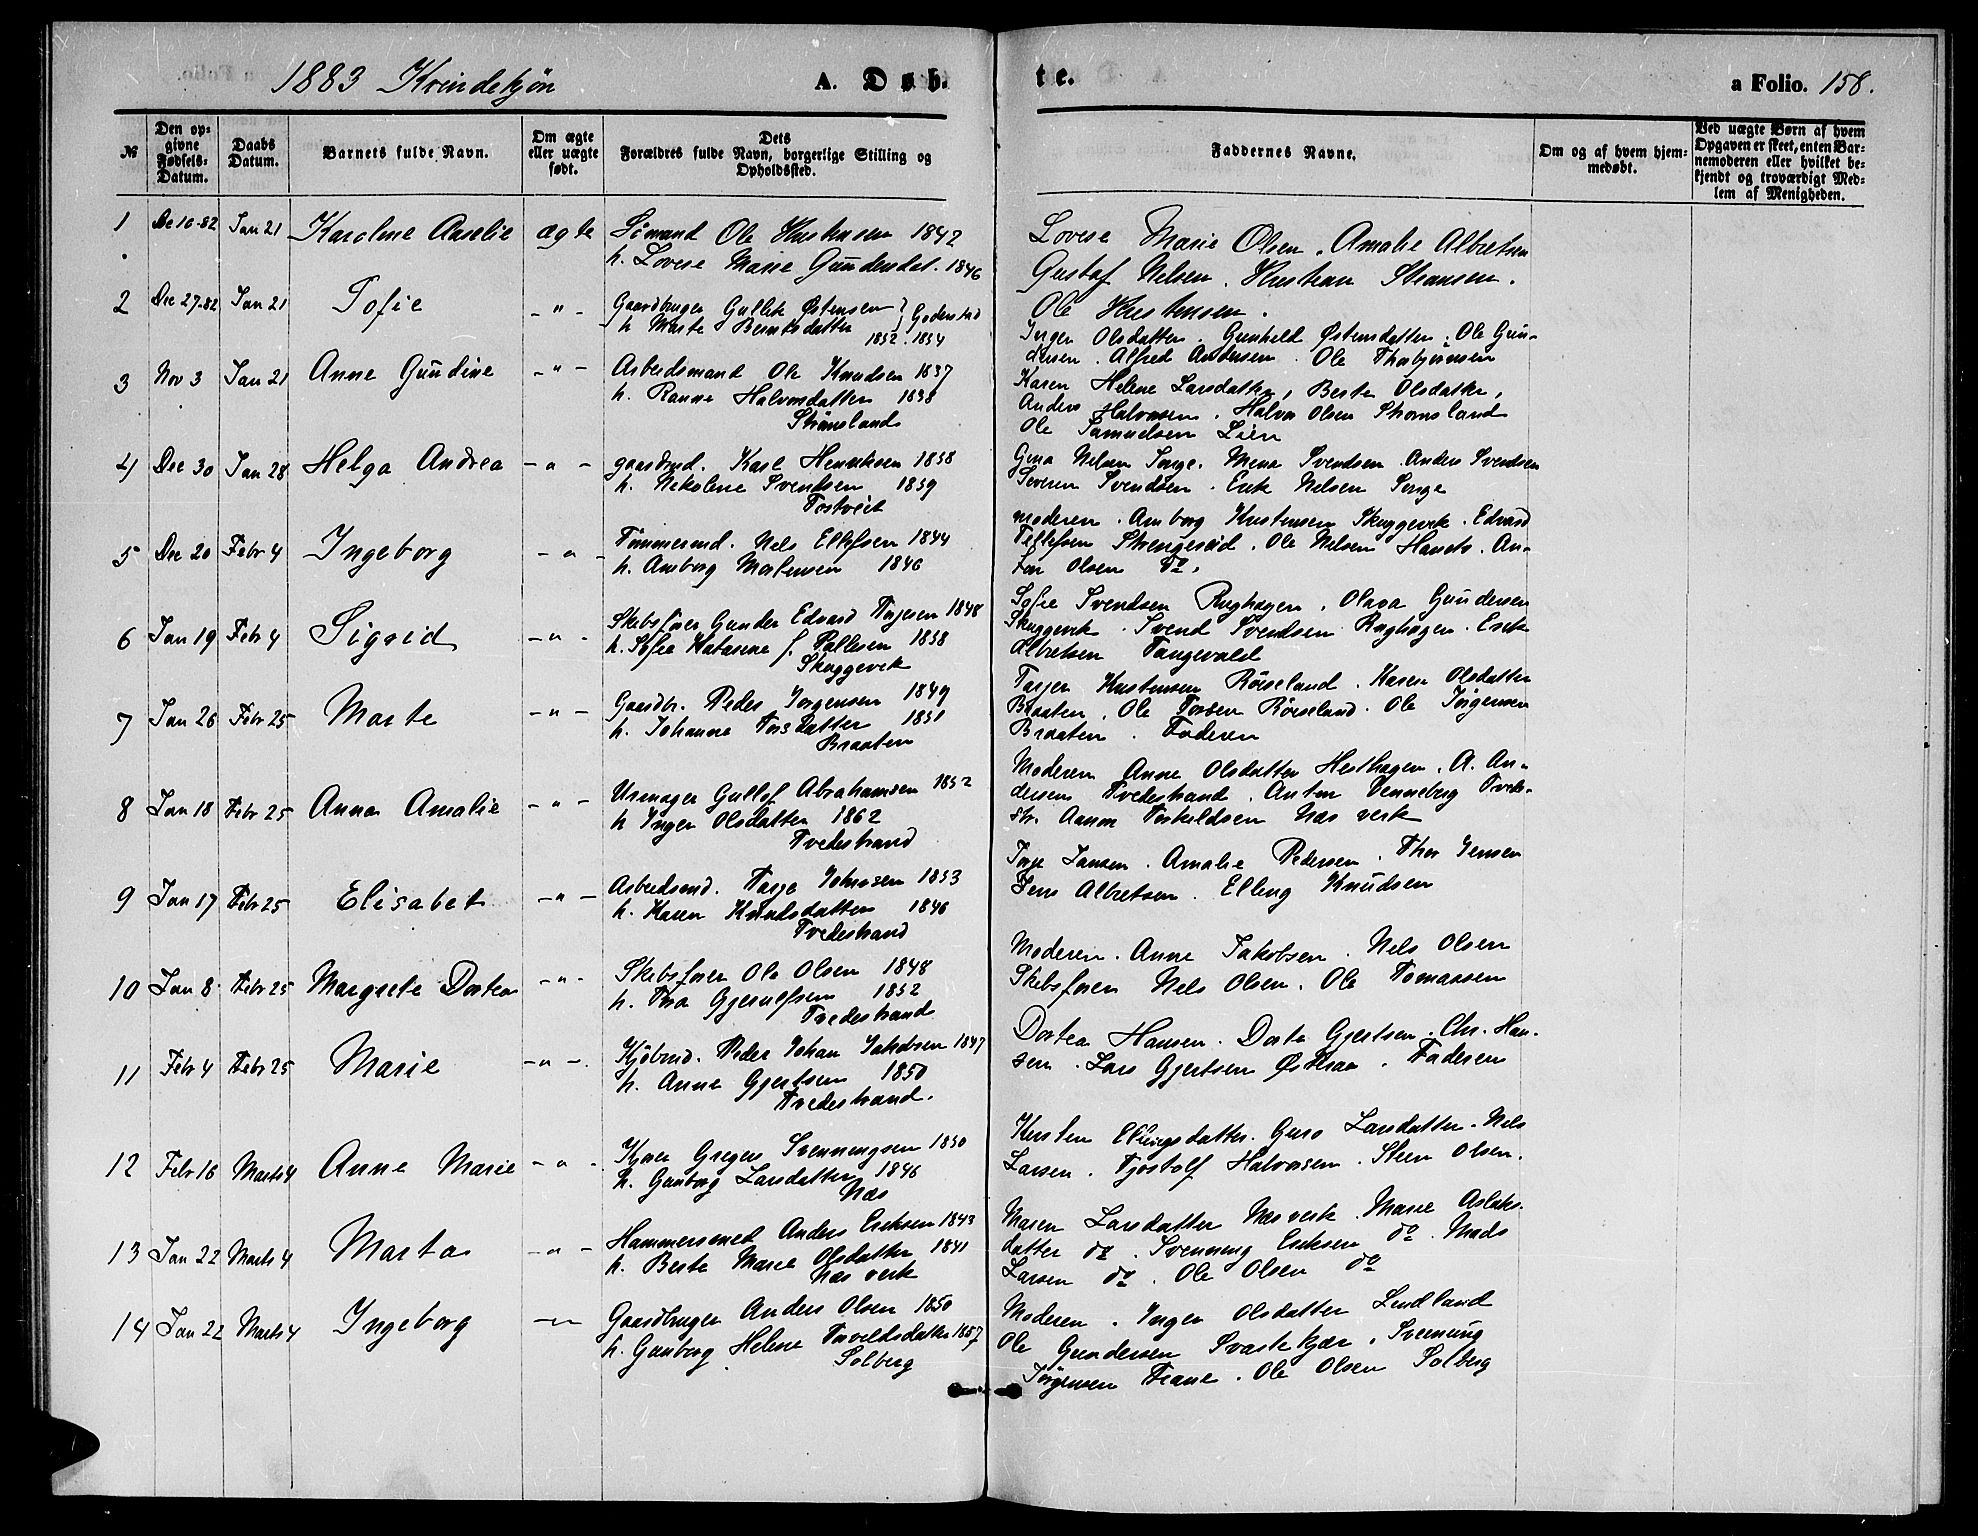 1883 Kvindekjøn A. Døb- te. a Folio. 158.
№ Den opgivne Fødsels-Datum. Daabs Datum. Barnets fulde Navn. Om ægte eller uægte født. Dets Forældres fulde Navn, borgerlige Stilling og Opholdssted. Faddernes Navne. Om og af hvem hjemmedøbt. Ved uægte Børn af hvem Opgaven er skeet, enten Barnemoderen eller hvilket bekjendt og troværdigt Medlem af Menigheden.
1 De 10-82 Jan 21 Karoline Amelie ægte Sømand Ole Kristensen 1842
h. Lovise Marie Gundersdat. 1846
Lovise Marie Olsen. Amalie Albretsen
Gustaf Nelsen. Kristian
Ole Kristensen.
2 Dec 27-82 Jan 21 Tofie -"- Gaardbruger Gullik Østensen } Goderstad
h Marte Berntsdatter 1852. 1854
Inger Olsdatter. Gunhild Østensdatter. Ole Gun-
dersen. Alfred Andersen. Ole Thorbjørnsen
3 Nov 3 Jan 21 Anne Gundine -"- Arbeidsmand Ole Knudsen 1837
h. Ranne Halvorsdatter 1838
Strømsland
Karen Helene Larsdatter, Berte Olsdatter,
Anders Halvorsen. Halvor Olsen Strømsland
Ole Samuelsen Lien
4 Dec 30 Jan 28 Helga Andrea -"- gaardmd. Karl Henriksen 1858
h. Nikoline Svendsen 1859
Tostveit
Gina Nelsen Songe. Mina Svendsen. Anders Svendsen
Severin Svendsen. Erik Nelsen Songe
5 Dec 20 Febr 4 Ingeborg -"- Tømmermd. Nels Ellefsen 1844
h. Amborg Mortensen 1846
Moderen. Amborg Kristensen Skuggevik. Edvard
Tellefsen Strengereid. Ole Nelsen Hanets. An-
ton Olsen do.
6 Jan 19 Febr 4 Sigrid -"- Skibsfører Gunder Edvard Terjesen 1848
h. Sofie Katarine f. Pallesen 1858
Skuggevik
Sofie Svendsen Rughagen. Olava Gundersen
Skuggevik. Svend Svendsen Rughagen. Erik
Albretsen Tangevald
7 Jan 26 Febr 25 Marte -"- Gaardbr. Peder Jørgensen 1849
h. Johanne Torsdatter 1851
Braaten
Tarjer Kristensen Røiseland. Karen Olsdatter
Braaten. Ole Torsen Røiseland. Ole Jørgensen
Braaten. Faderen
8 Jan 18 Febr 25 Anna Amalie -"- Urmager Gullof Abrahamsen 1852
h Inger Olsdatter 1862
Tvedestrand
Moderen Anne Olsdatter Hesthagen. A. An-
dersen Tvedestrand. Anton Venneberg Tvede-
str. Aanon Torkildsen Næs verk
9 Jan 17 Febr 25 Elisabet -"- Arbeidsmd. Tarje Johnsen 1853
h. Karen Knudsdatter 1846
Tvedestrand
Terje Jansen. Amalie Pedersen. Thor Jensen
Jens Albretsen. Elling Knudsen
10 Jan 8 Febr 25 Margrete Dortea -"- Skibsfører Ole Olsen 1848
h. Tina Gjeruldsen 1852
Tvedestrand
Moderen. Anne Jakobsen. Nels Olsen
Skibsfører Nels Olsen. Ole Tomassen
11 Febr 4 Febr 25 Marie -"-. Kjøbmd. Peder Johan Jakobsen 1847
h. Anne Gjertsen 1850
Tvedestrand.
Dortea Hansen. Dorte Gjertsen. Chr. Han-
sen. Lars Gjertsen Østeraa. Faderen
12 Febr 16 Marts 4 Anne Marie -"- Kjører Gregers Svenningsen 1850
h. Gunborg Larsdatter 1846
Næs
Kirsten Ellingsdatter. Guro Larsdatter. Nels
Larsen. Tjøstolf Halvorsen. Steen Olsen.
13 Jan 22 Marts 4 Marta -"- Hammersmed Anders Eriksen 1843
h. Berte Marie Olsdatter 1841
Næs verk
Maren Larsdatter Næs verk. Marie Aslaks-
datter do. Svenning Eriksen do. Mads
Larsen do. Ole Olsen do
14 Jan 22 Marts 4 Ingeborg -"- Gaardbruger Anders Olsen 1850
h. Gunborg Helene Tarveldsdatter 1857
Solberg
Moderen. Inger Olsdatter Lindland
Ole Gundersen Svartekjær. Svenning
Jørgensen Trane. Ole Olsen Solberg